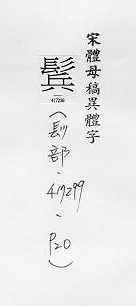 宋體母稿異體字
417299
(髟部.417299.P20)